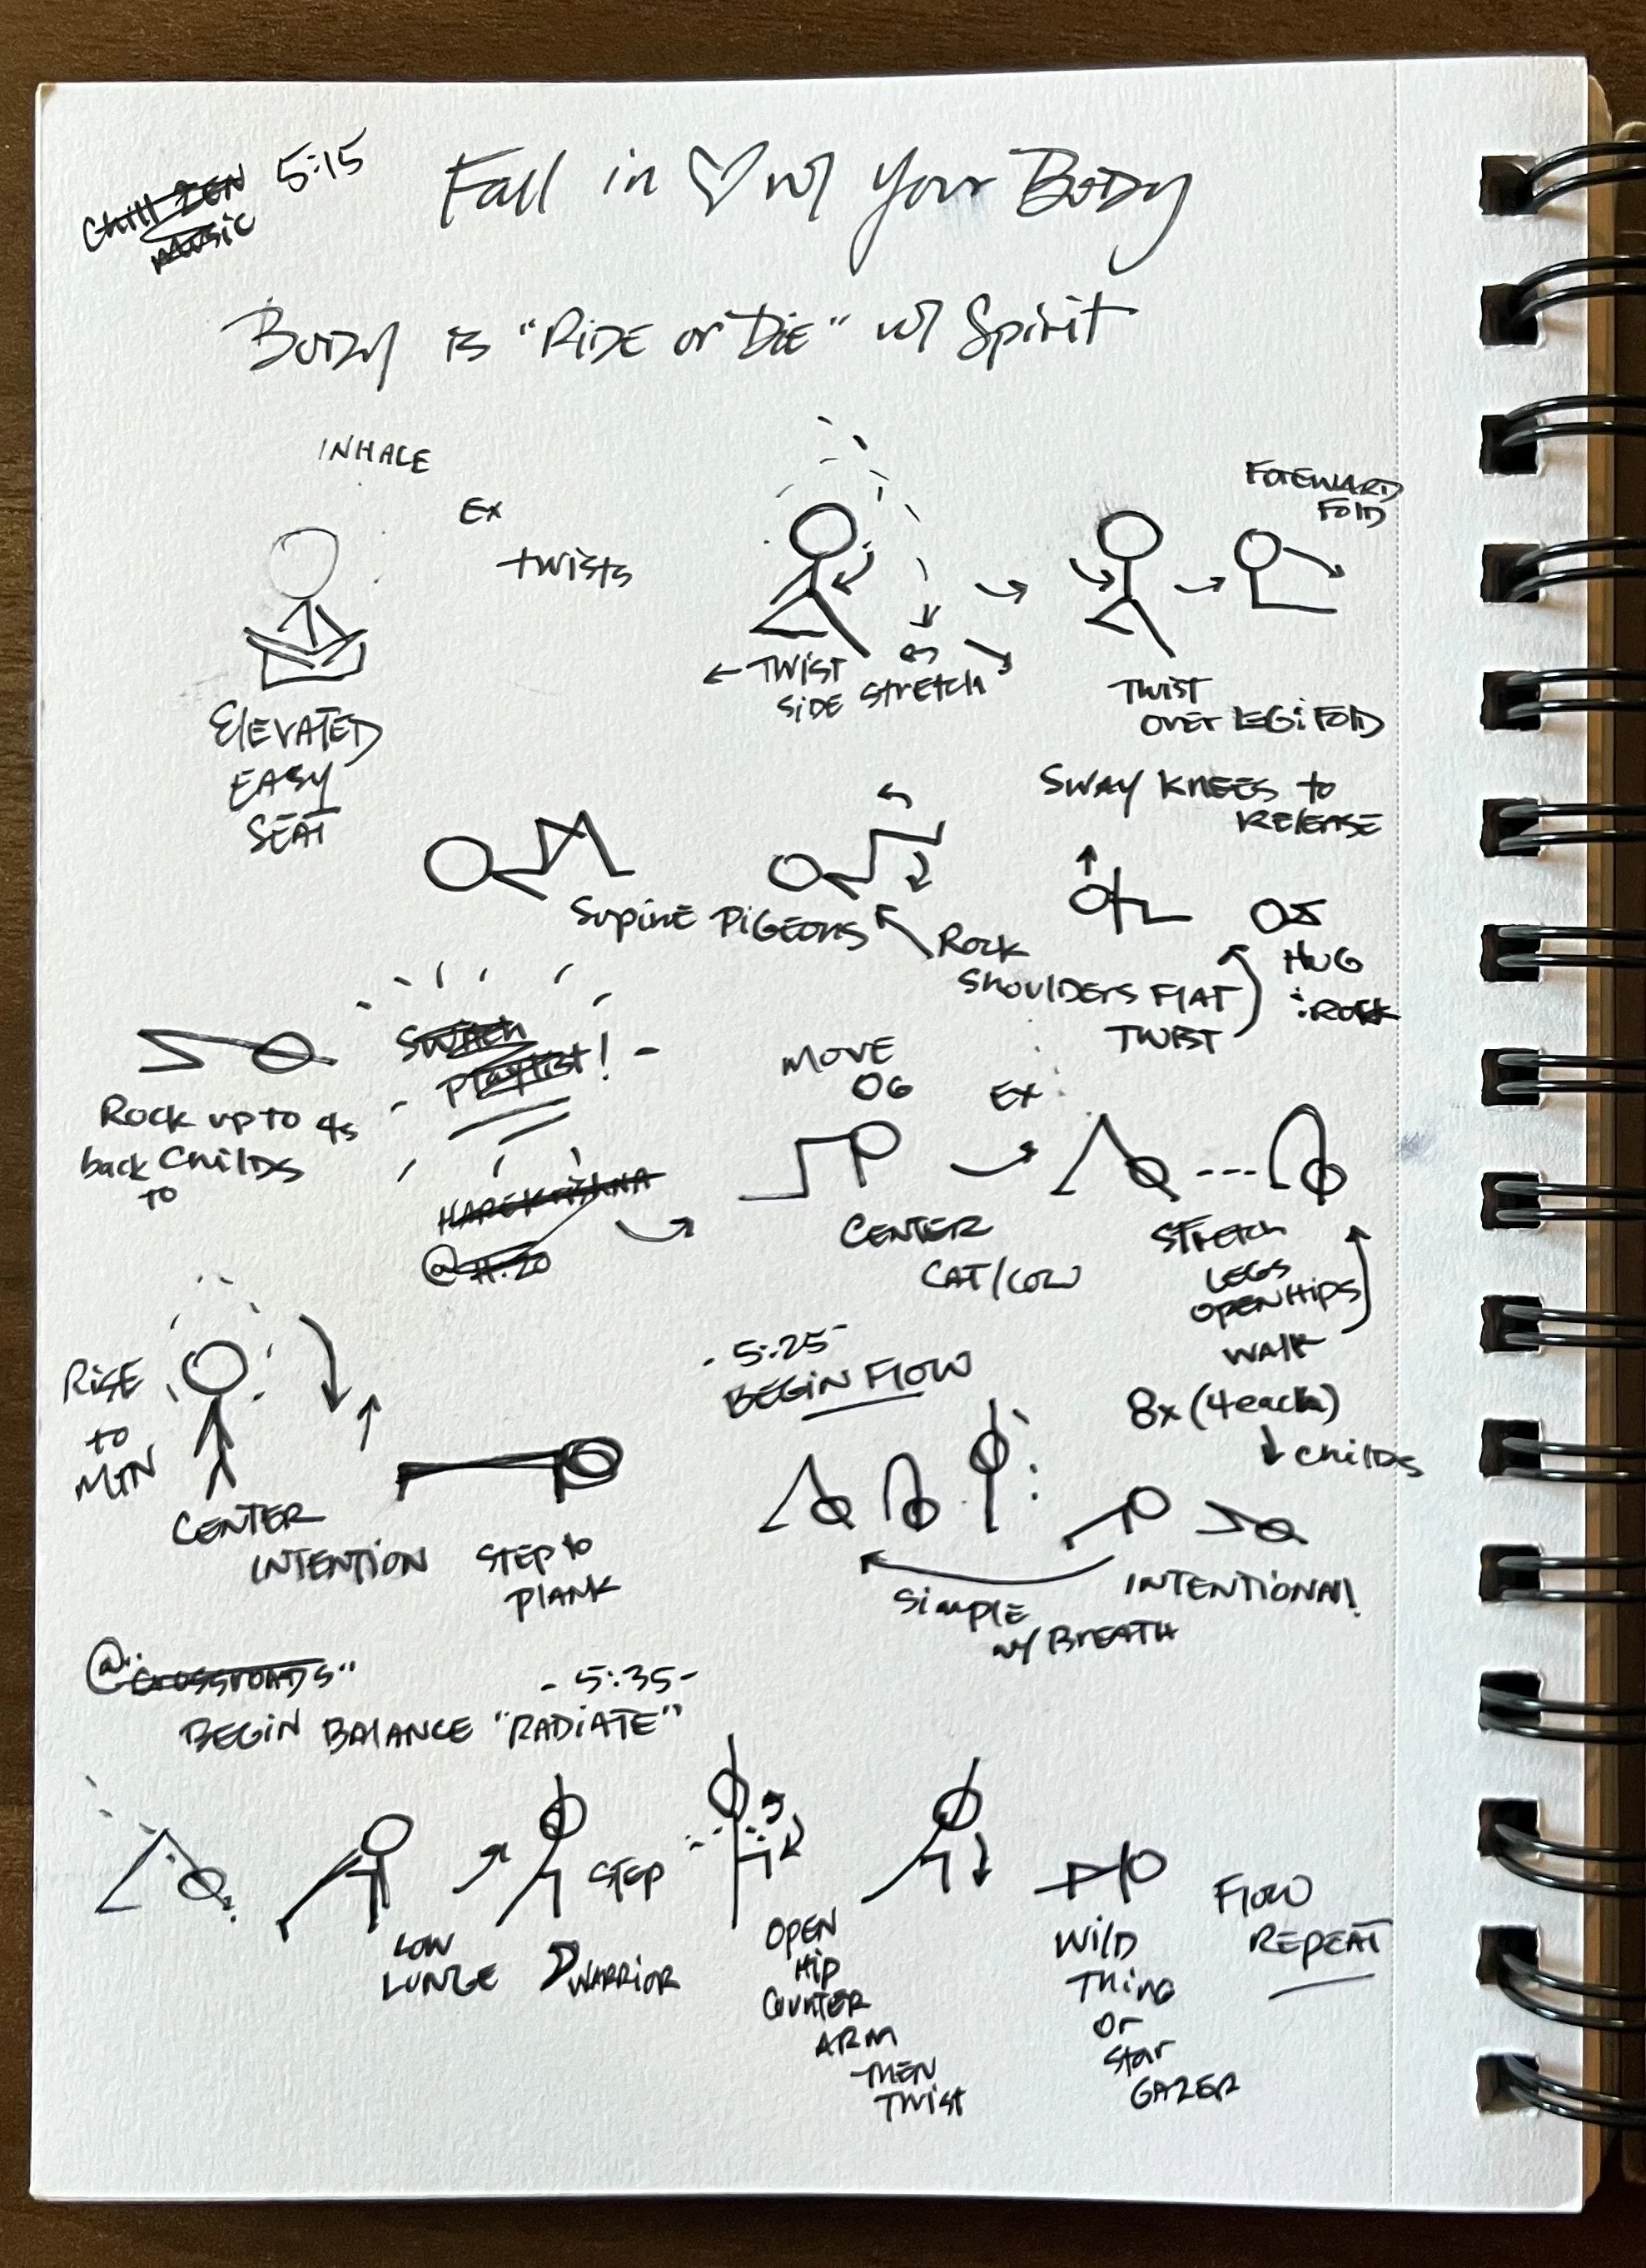 Chill ZEN 5:15
MUSIC
Fall in ♡ w/ Your BODY
BODY is "RIDE or DIE" w/ Spirit
INHALE
EX
twists
FOREWARD
FOLD
← TWIST
SIDE STRETCH
TWIST
OVER LEG: FOLD
ELEVATED
EASY
SEAT
SWAY KNEES to
RELEASE
SUPINE PIGEONS
ROCK
SHOULDERS FLAT
TWIST
HUG
: ROCK
SWITCH
PLAYLIST!
ROCK UP TO 4s
back CHILDS
TO
MOVE
OG
EX
HARE KRISHNA
@ 11:20
CENTER
CAT/COW
STRETCH
LEGS
OPEN HIPS
WALK
RISE
to
MTN
CENTER
INTENTION
STEP to
PLANK
- 5:25 -
BEGIN FLOW
8x (4 each)
↓ CHILDS
SIMPLE
w/ BREATH
INTENTIONAL!
@ "CROSSROADS"
- 5:35 -
BEGIN BALANCE "RADIATE"
LOW
LUNGE
WARRIOR
STEP
OPEN
HIP
COUNTER
ARM
THEN
TWIST
WILD
THING
or
STAR
GAZER
FLOW
REPEAT